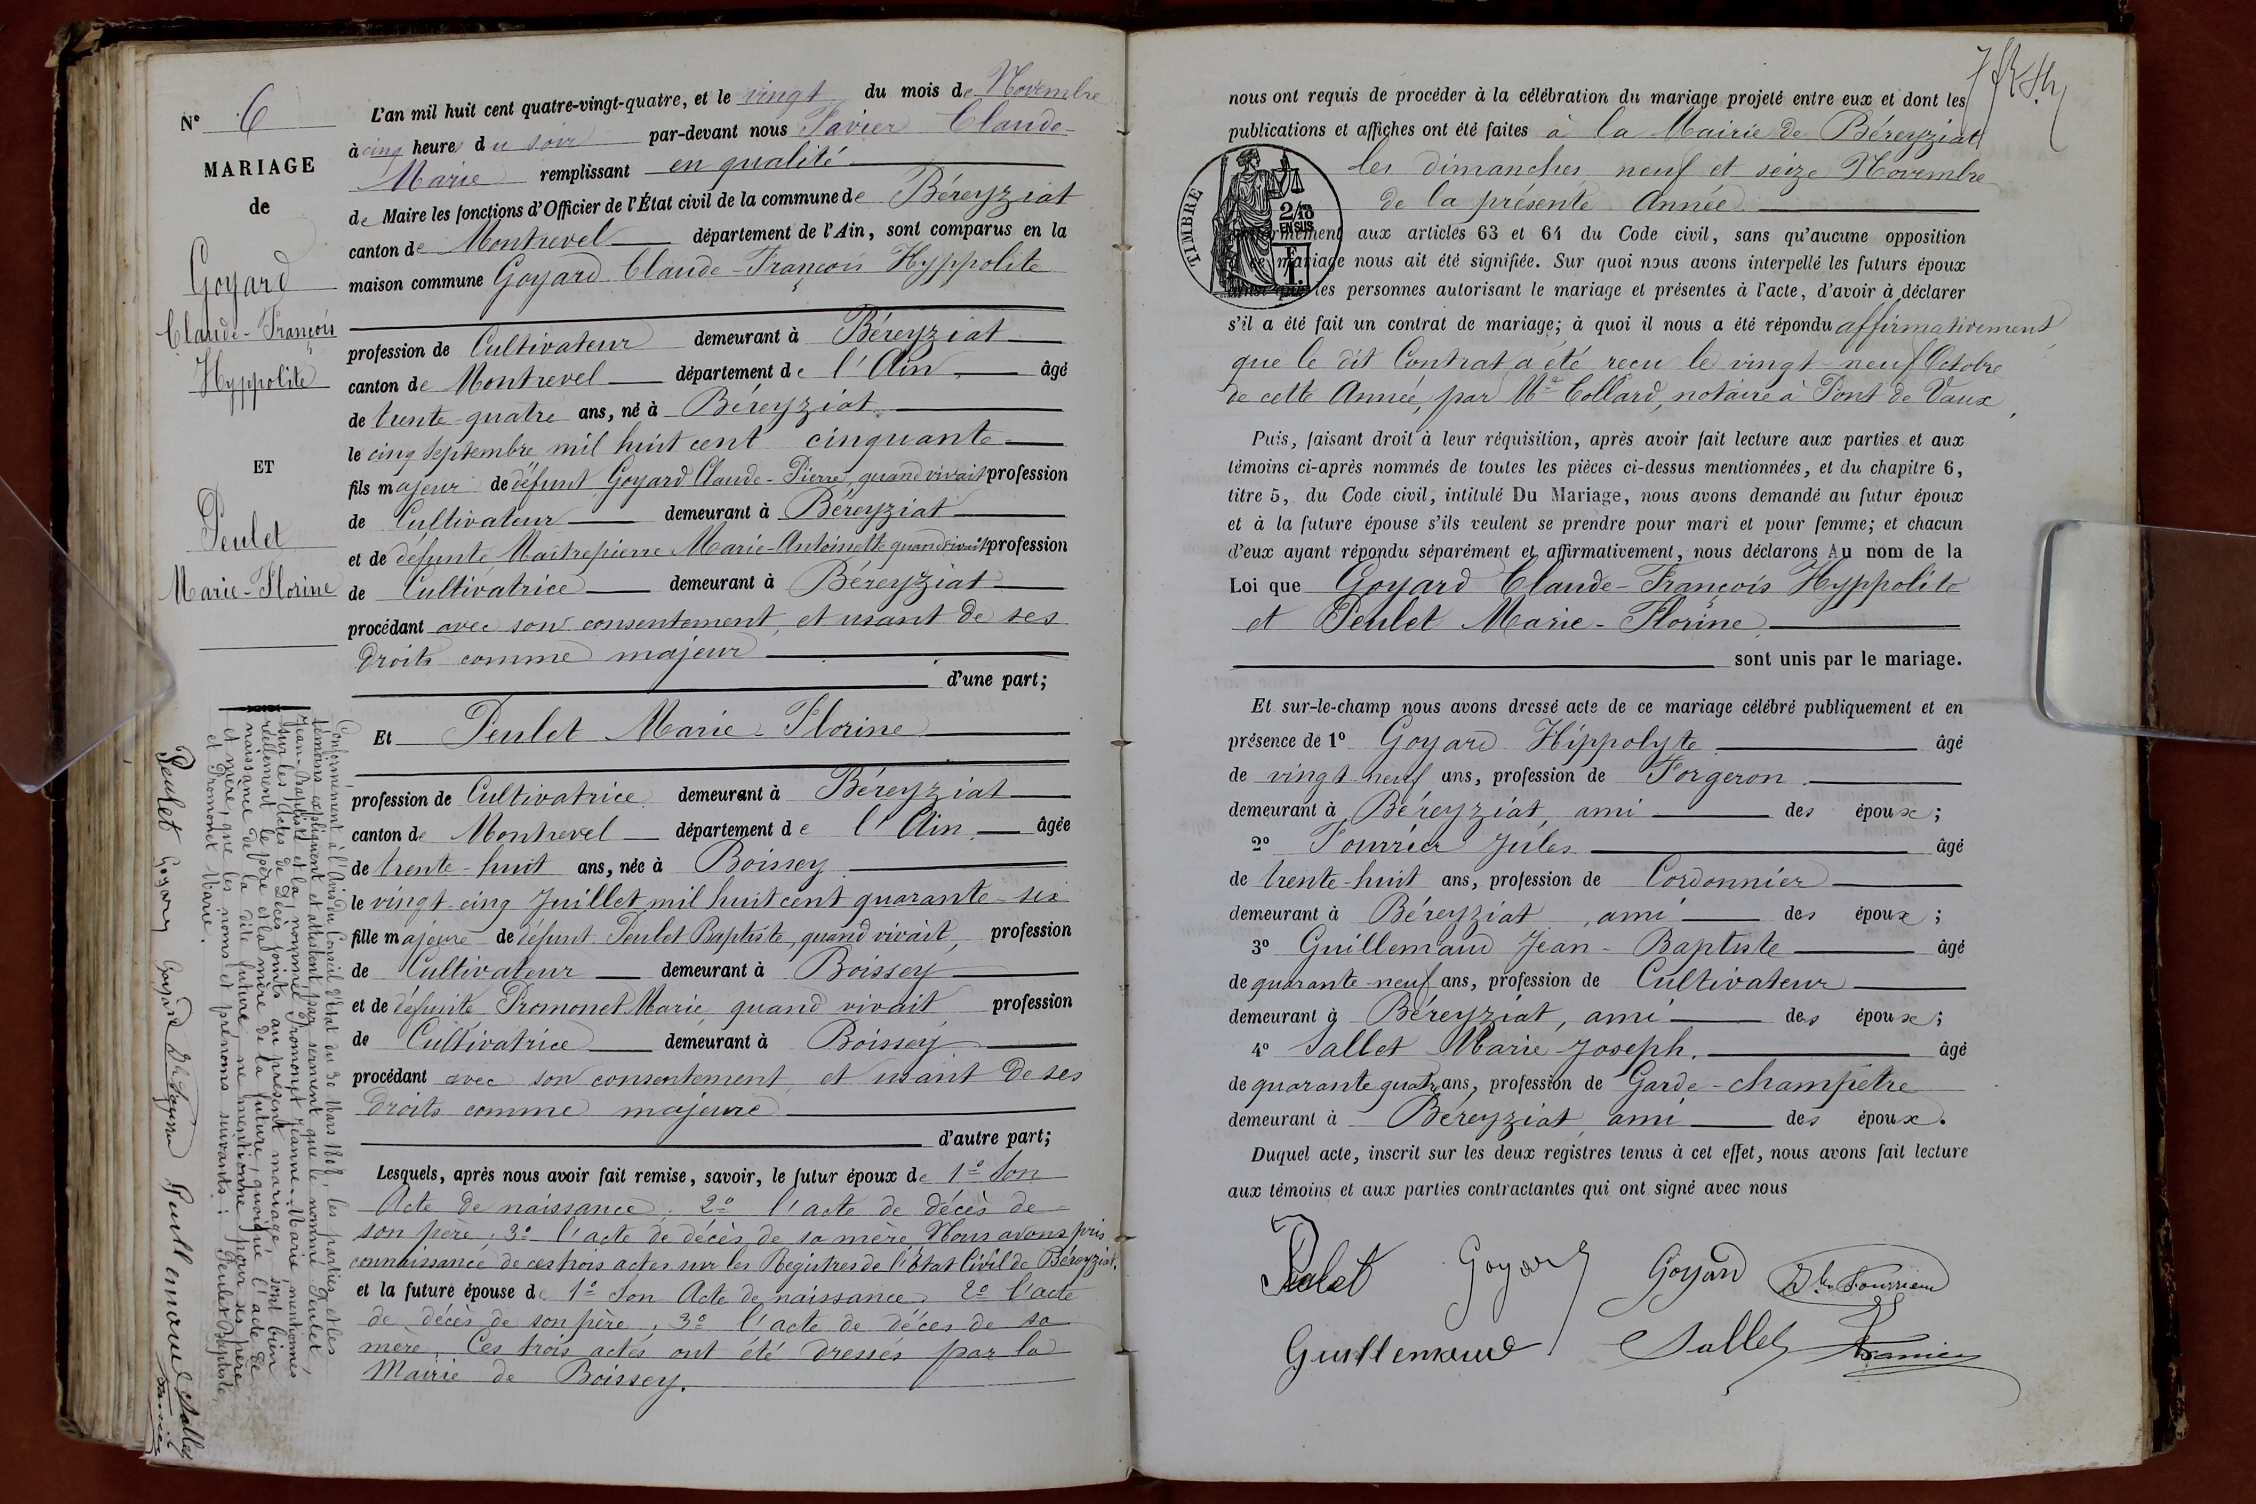 N° 6
MARIAGE
de
Goyard
Claude-François
Hyppolite
ET
Peulet
Marie-Florine
L'an mil huit cent quatre-vingt-quatre, et le vingt du mois de Novembre
à cinq heures du soir par-devant nous Favier Claude-
Marie remplissant en qualité
de Maire les fonctions d'Officier de l'État civil de la commune de Béreyziat
canton de Montrevel département de l'Ain, sont comparus en la
maison commune Goyard Claude-François Hyppolite
profession de Cultivateur demeurant à Béreyziat
canton de Montrevel département de l'Ain âgé
de trente-quatre ans, né à Béreyziat
le cinq septembre mil huit cent cinquante
fils majeur de défunt Goyard Claude-Pierre, quand vivait profession
de Cultivateur demeurant à Béreyziat
et de défunte Maitrepierre Marie-Antoinette quand vivait profession
de Cultivatrice demeurant à Béreyziat
procédant avec son consentement et usant de ses
droits comme majeur
d'une part;
Et Peulet Marie-Florine
profession de Cultivatrice demeurant à Béreyziat
canton de Montrevel département de l'Ain âgée
de trente-huit ans, née à Boissey
le vingt-cinq Juillet mil huit cent quarante-six
fille majeure de défunt Peulet Baptiste, quand vivait, profession
de Cultivateur demeurant à Boissey
et de défunte Promonet Marie, quand vivait profession
de Cultivatrice demeurant à Boissey
procédant avec son consentement et usant de ses
droits comme majeure
d'autre part;
Lesquels, après nous avoir fait remise, savoir, le futur époux de 1° Son
Acte de naissance; 2° l'acte de décès de
son père; 3° l'acte de décès de sa mère, Nous avons pris
connaissance de ces trois actes sur les Registres de l'État Civil de Béreyziat.
et la future épouse de 1° Son Acte de naissance 2° l'acte
de décès de son père, 3° l'acte de décès de sa
mère, Ces trois actes ont été dressés par la
Mairie de Boissey.
Conformément à l'Avis du Conseil d'Etat du 30 Mars 1808, les parties et les
témoins expliquent et attestent par serment que le nommé Peulet
Jean-Baptiste et la nommée Promonet Jeanne-Marie mentionnés
sur les Actes de Décès joints au présent mariage, sont bien
réellement le père et la mère de la future, quoique l'acte de
naissance de la dite future ne mentionne pour ses père
et mère, que les noms et prénoms suivants: Peulet Baptiste,
et Promonet Marie.
Peulet Goyard Goyard Guillemaud Sallet
nous ont requis de procéder à la célébration du mariage projeté entre eux et dont les
publications et affiches ont été faites à la Mairie de Béreyziat
les dimanches neuf et seize Novembre
de la présente Année
TIMBRE
2/10
EN SUS
aux articles 63 et 64 du Code civil, sans qu'aucune opposition
mariage nous ait été signifiée. Sur quoi nous avons interpellé les futurs époux
ainsi que les personnes autorisant le mariage et présentes à l'acte, d'avoir à déclarer
s'il a été fait un contrat de mariage; à quoi il nous a été répondu affirmativement
que le dit Contrat a été reçu le vingt-neuf Octobre
de cette Année, par Me Collard, notaire à Pont de Vaux,
Puis, faisant droit à leur réquisition, après avoir fait lecture aux parties et aux
témoins ci-après nommés de toutes les pièces ci-dessus mentionnées, et du chapitre 6,
titre 5, du Code civil, intitulé Du Mariage, nous avons demandé au futur époux
et à la future épouse s'ils veulent se prendre pour mari et pour femme; et chacun
d'eux ayant répondu séparément et affirmativement, nous déclarons Au nom de la
Loi que Goyard Claude-François Hyppolite
et Peulet Marie-Florine
sont unis par le mariage.
Et sur-le-champ nous avons dressé acte de ce mariage célébré publiquement et en
présence de 1° Goyard Hippolyte âgé
de vingt-neuf ans, profession de Forgeron
demeurant à Béreyziat, ami des époux;
2° Fourrier Jules âgé
de trente-huit ans, profession de Cordonnier
demeurant à Béreyziat, ami des époux;
3° Guillemaud Jean-Baptiste âgé
de quarante-neuf ans, profession de Cultivateur
demeurant à Béreyziat, ami des époux;
4° Sallet Marie-Joseph, âgé
de quarante quatre ans, profession de Garde-champêtre
demeurant à Béreyziat, ami des époux.
Duquel acte, inscrit sur les deux registres tenus à cet effet, nous avons fait lecture
aux témoins et aux parties contractantes qui ont signé avec nous
Goyard Goyard
Guillemaud Sallet